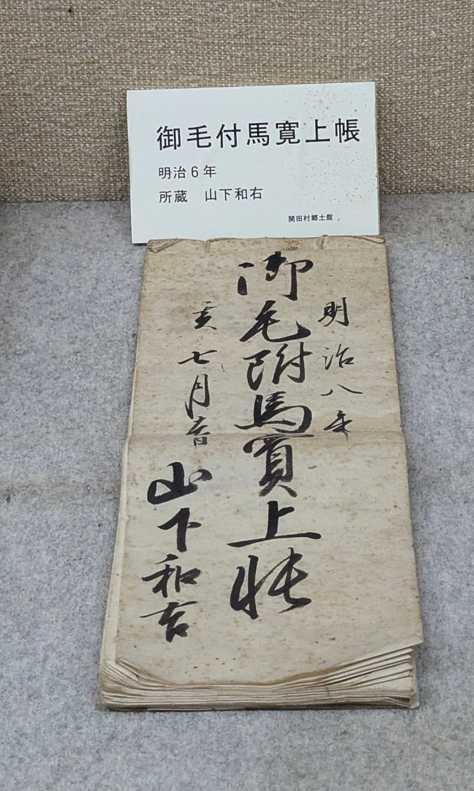 御毛付馬寛上帳
明治6年
所蔵　山下和右
開田村郷土館
明治八年
御毛附馬買上帳
亥七月吉日
山下和吉